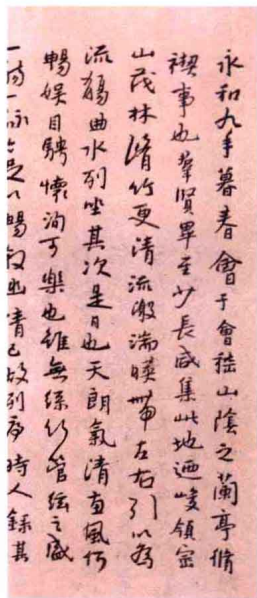 永和九年暮春會于會稽山陰之蘭亭脩
禊事也羣賢畢至少長咸集此地迺峻領崇
山茂林脩竹更清流激湍暎帶左右引以為
流觴曲水列坐其次是日也天朗氣清惠風和
暢娛目騁懷洵可樂也雖無絲竹管絃之盛
一觴一詠亦足以暢敘幽情已故列序時人錄其